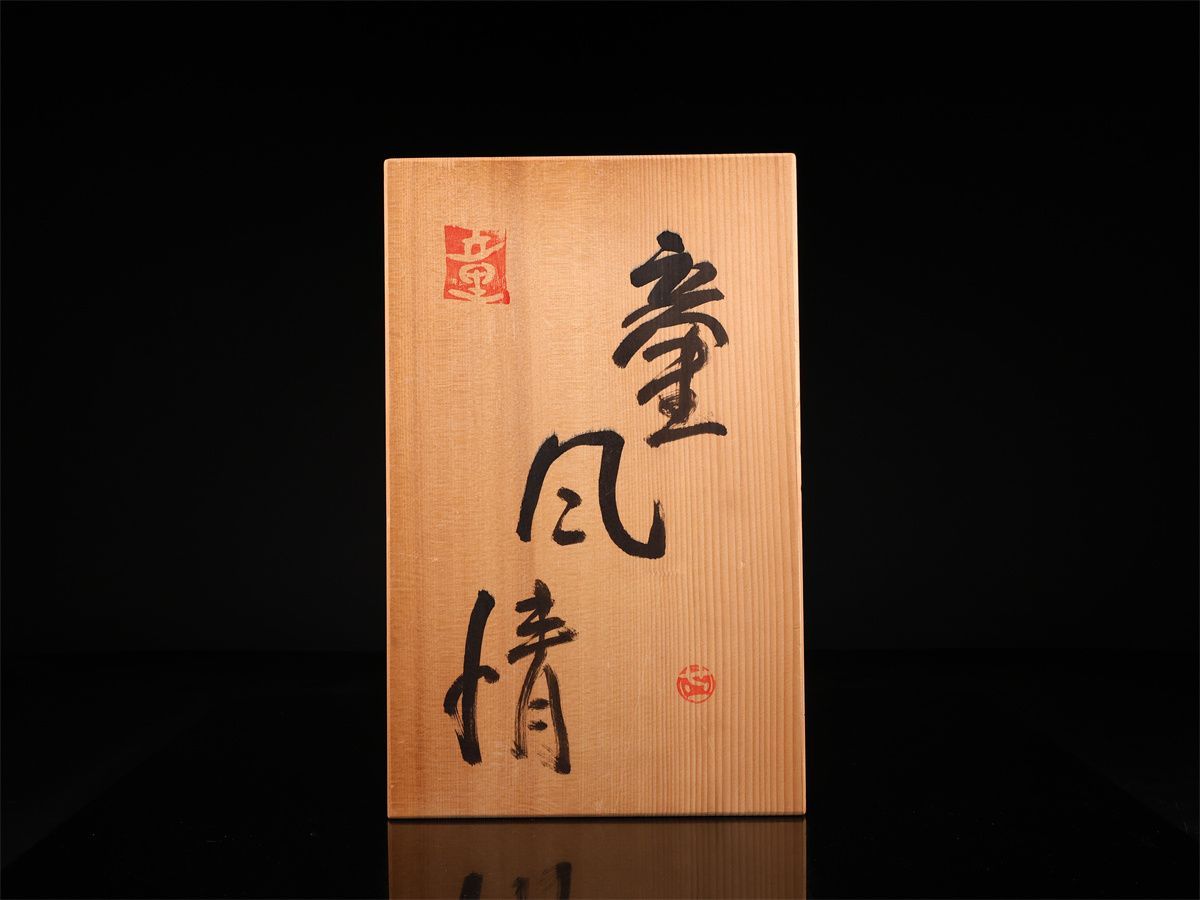 童風情
童